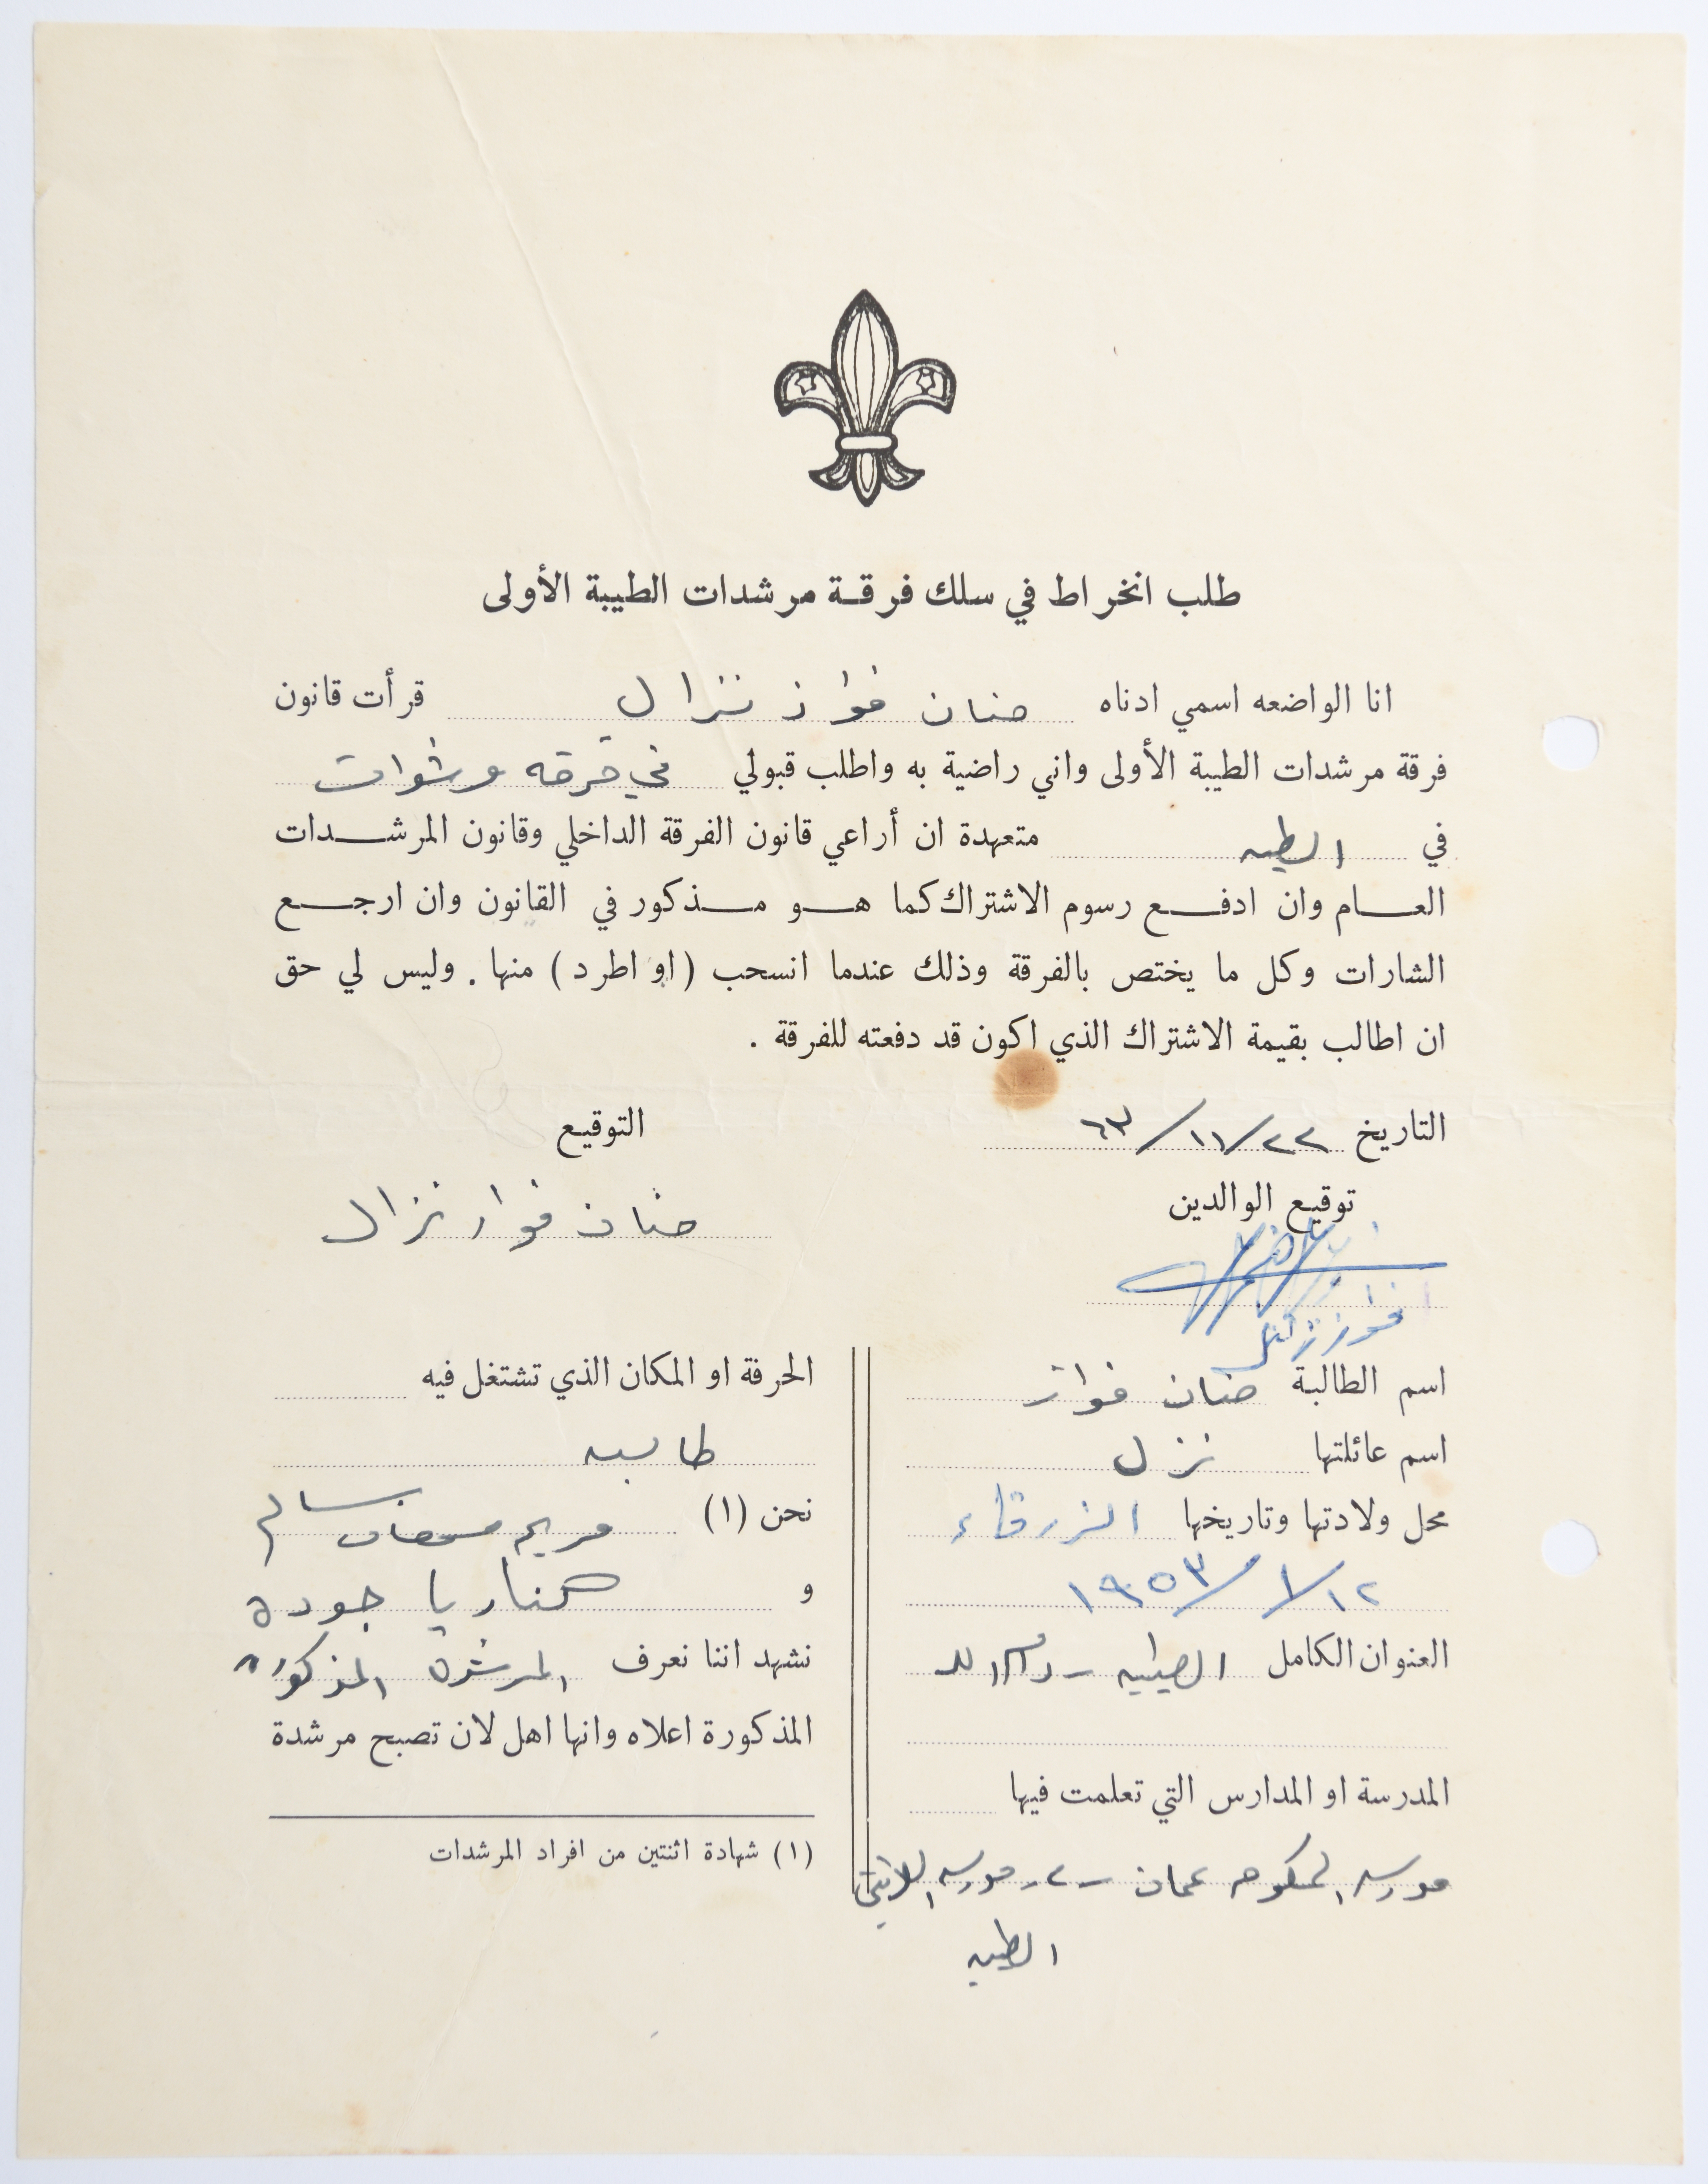 طلب انخراط في سلك فرقة مرشدات الطيبة الأولى
انا الواضعه اسمي ادناه حنان فواز نزال قرأت قانون
فرقة مرشدات الطيبة الأولى واني راضية به واطلب قبولي في فرقه مرشدات
في الطيبه متعهدة ان أراعي قانون الفرقة الداخلي وقانون المرشدات
العام وان ادفع رسوم الاشتراك كما هو مذكور في القانون وان ارجع
الشارات وكل ما يختص بالفرقة وذلك عندما انسحب (او اطرد) منها. وليس لي حق
ان اطالب بقيمة الاشتراك الذي اكون قد دفعته للفرقة.
التاريخ ٢٢/١١/٦٣
التوقيع
حنان فواز نزال
توقيع الوالدين
فواز نزال
اسم الطالبة حنان فواز
اسم عائلتها نزل
محل ولادتها وتاريخها الزرقاء
١٢/١/١٩٥٣
العنوان الكامل الطيبه - رام الله
المدرسة او المدارس التي تعلمت فيها
مدرسه الحكومه عمان - ٢- مدرسه اللاتين
الطيبه
الحرفة او المكان الذي تشتغل فيه
طالبه
نحن (١) مريم سالم
و كناريا جودة
نشهد اننا نعرف المرشدة المذكوره
المذكورة اعلاه وانها اهل لان تصبح مرشدة
(١) شهادة اثنتين من افراد المرشدات